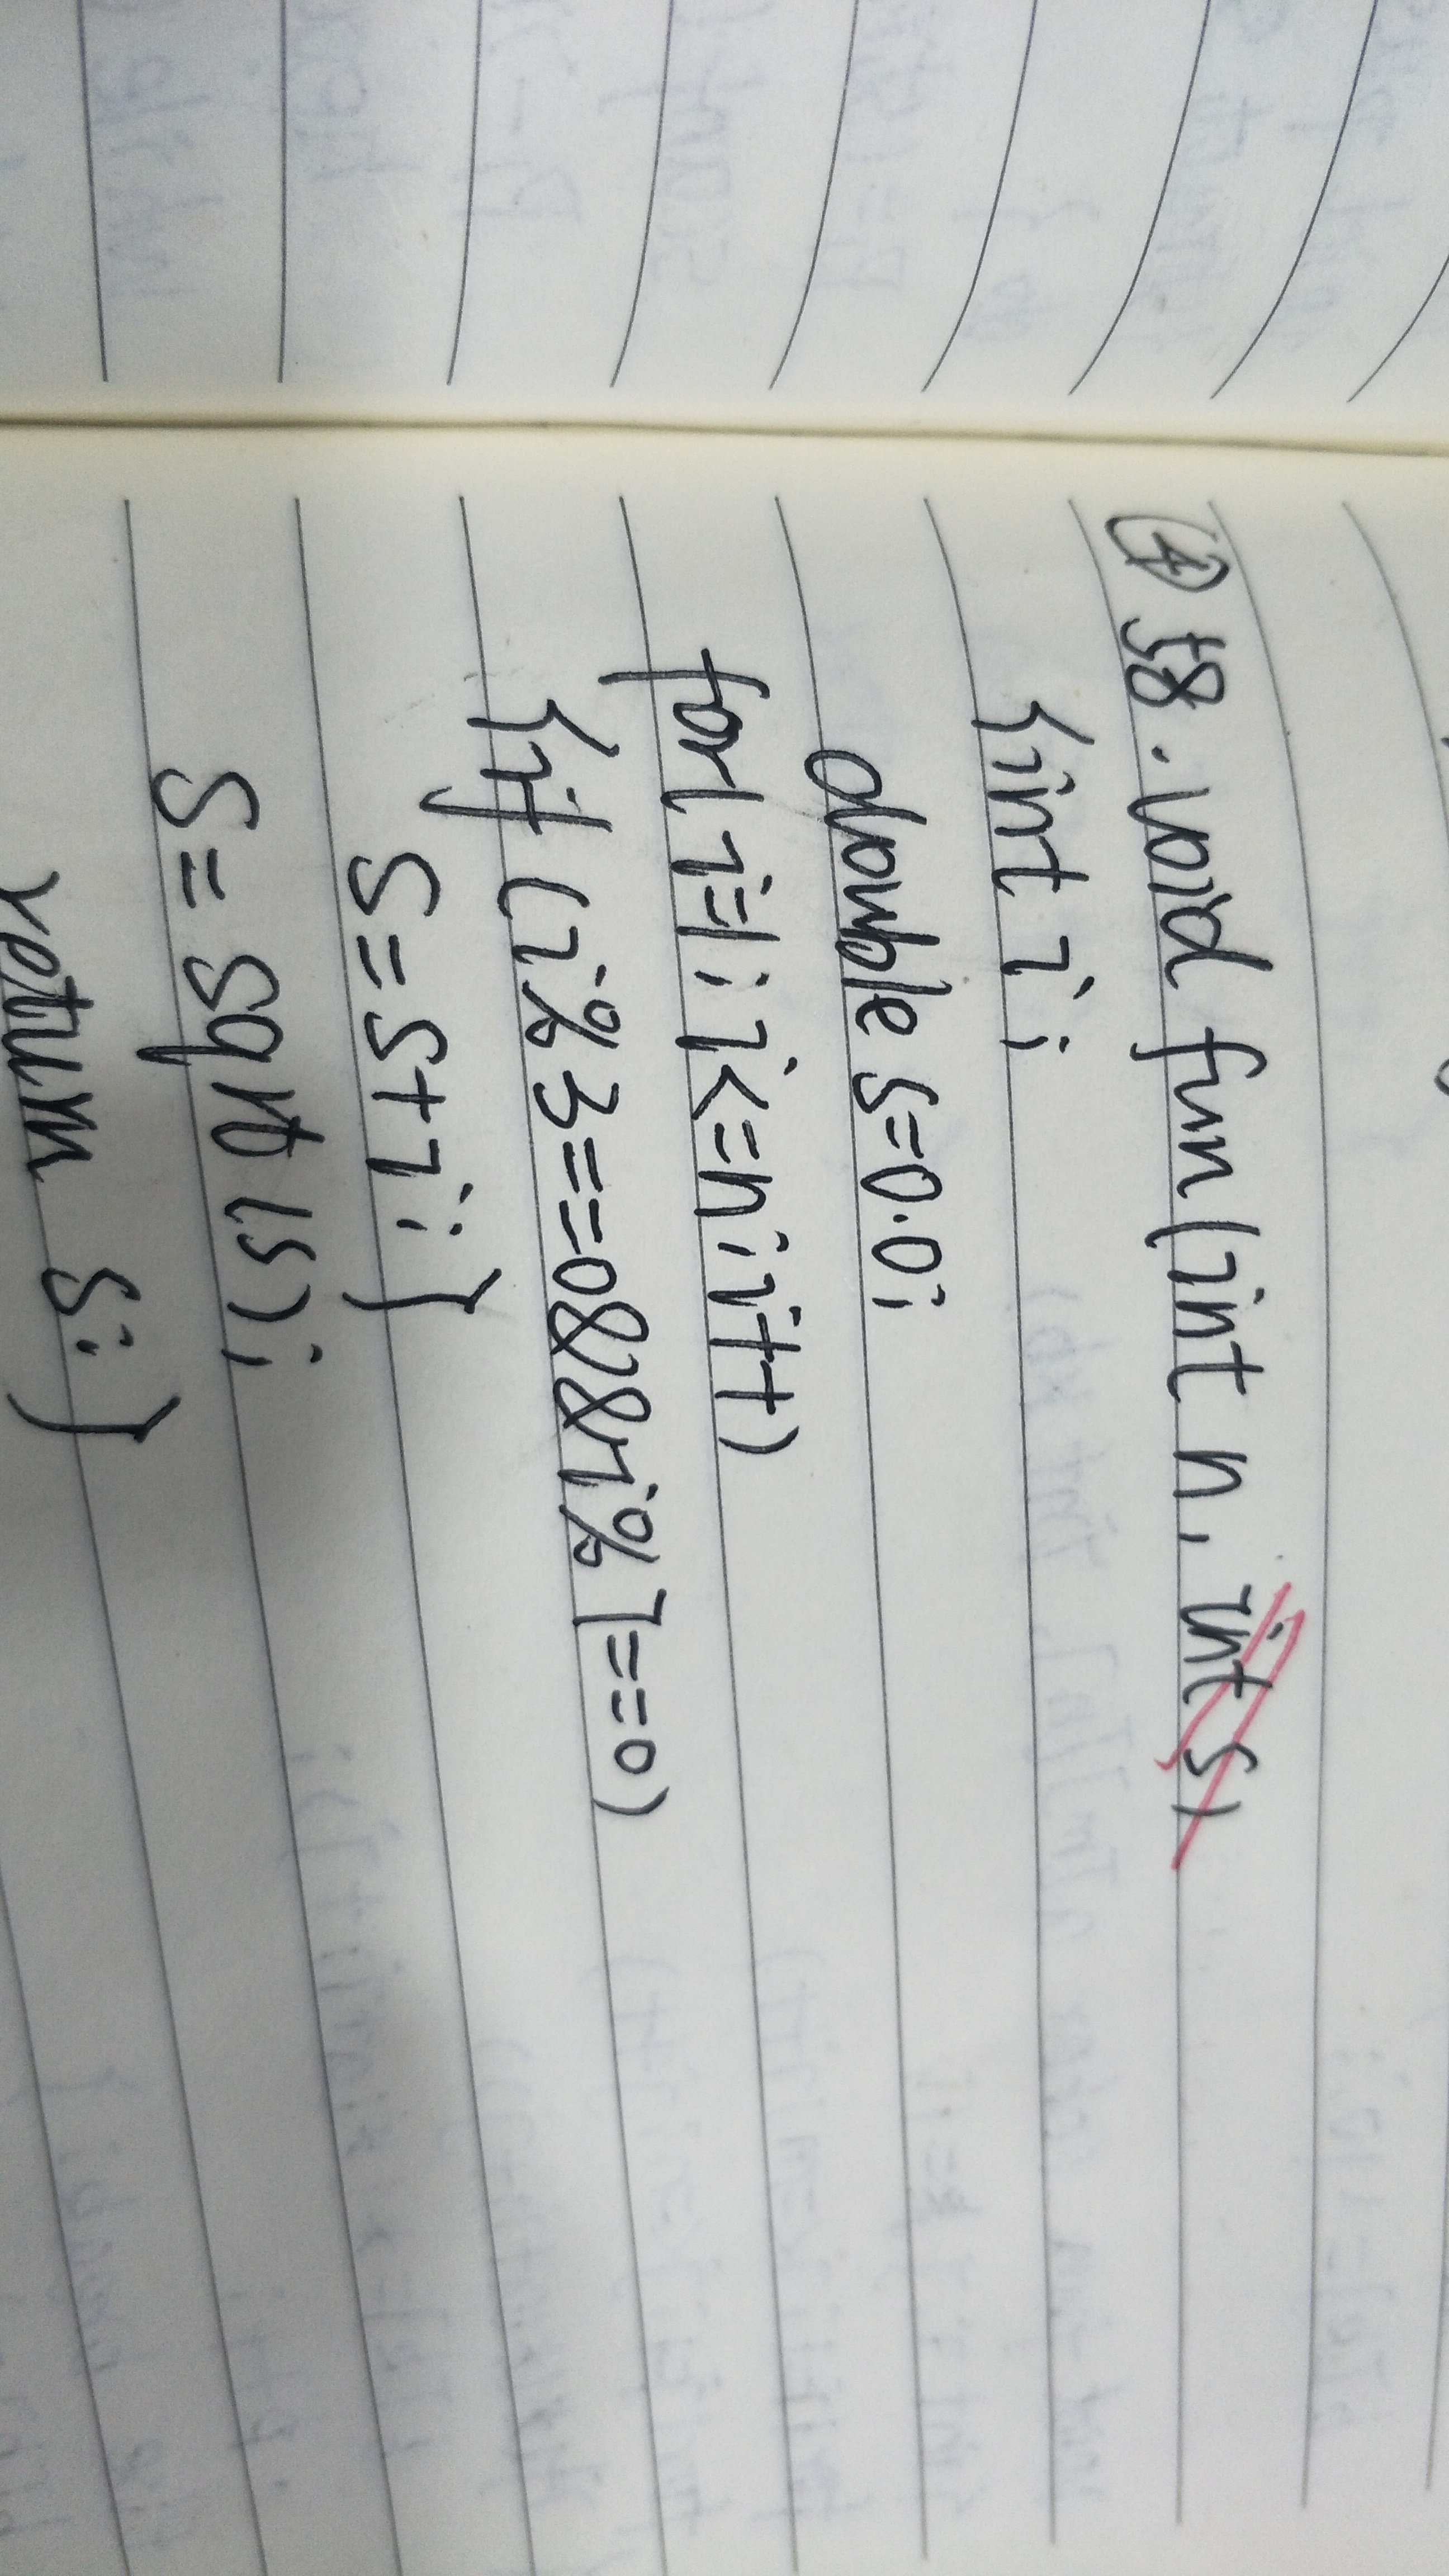 ④ 58. void fun(int n, int s)
{int i;
double s=0.0;
for(i=1; i<=n; i++)
{if (i%3==0&&i%7==0)
s=s+i;}
s=sqrt(s);
return s;}